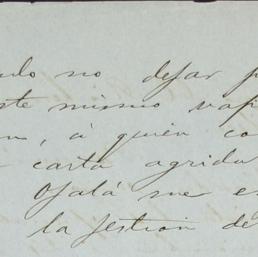 no dejar
este mismo vap
, á quien co
carta agrida
Ojalá me es
la jestion de